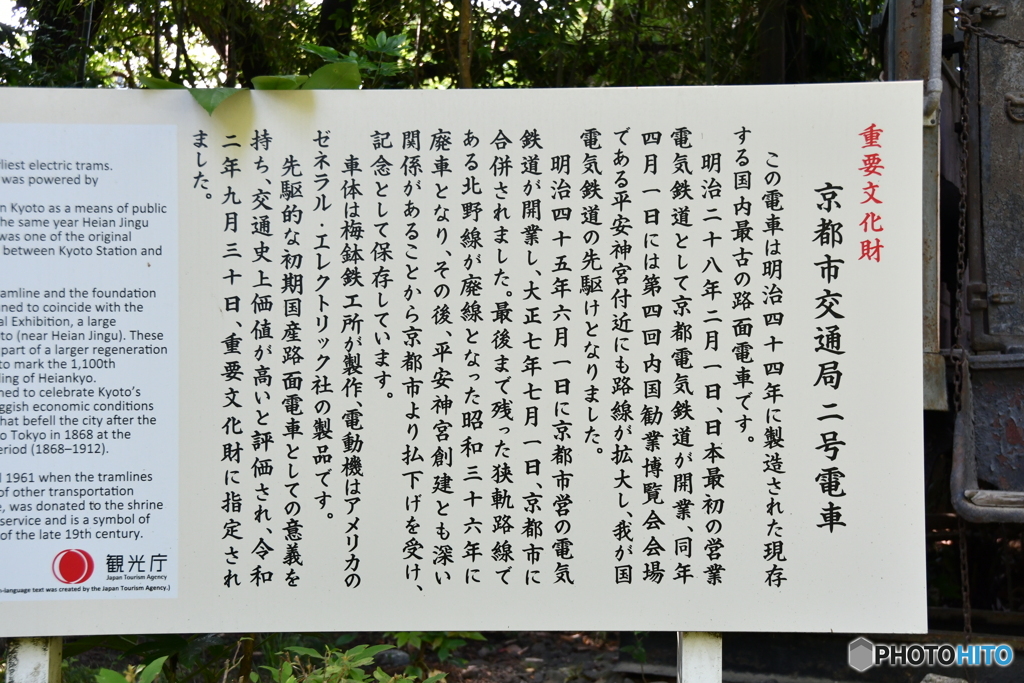 重要文化財
京都市交通局 二号電車
この電車は明治四十四年に製造された現存
する国内最古の路面電車です。
明治二十八年二月一日、日本最初の営業
電気鉄道として京都電気鉄道が開業、同年
四月一日には第四回内国勧業博覧会会場
である平安神宮付近にも路線が拡大し、我が国
電気鉄道の先駆けとなりました。
明治四十五年六月一日に京都市営の電気
鉄道が開業し、大正七年七月一日、京都市に
合併されました。最後まで残った狭軌路線で
ある北野線が廃線となった昭和三十六年に
廃車となり、その後、平安神宮創建とも深い
関係があることから京都市より払下げを受け、
記念として保存しています。
車体は梅鉢鉄工所が製作、電動機はアメリカの
ゼネラル・エレクトリック社の製品です。
先駆的な初期国産路面電車としての意義を
持ち、交通史上価値が高いと評価され、令和
二年九月三十日、重要文化財に指定され
ました。
liest electric trams.
was powered by
n Kyoto as a means of public
he same year Heian Jingu
was one of the original
between Kyoto Station and
amline and the foundation
ned to coincide with the
al Exhibition, a large
to (near Heian Jingu). These
part of a larger regeneration
to mark the 1,100th
ling of Heiankyo.
ned to celebrate Kyoto's
ggish economic conditions
hat befell the city after the
o Tokyo in 1868 at the
eriod (1868–1912).
1961 when the tramlines
of other transportation
e, was donated to the shrine
service and is a symbol of
of the late 19th century.
観光庁
Japan Tourism Agency
n-language text was created by the Japan Tourism Agency.)
PHOTOHITO